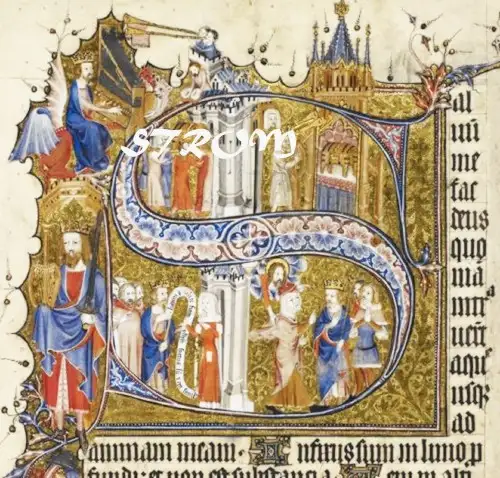 STROM
Sal
uū
me
fac
deus
quo
niā
intᵃ
uerūt
aque
usqꝫ
ad
animam meam. Infixus sum in limo p
fundi: et non est substancia. Veni in alti